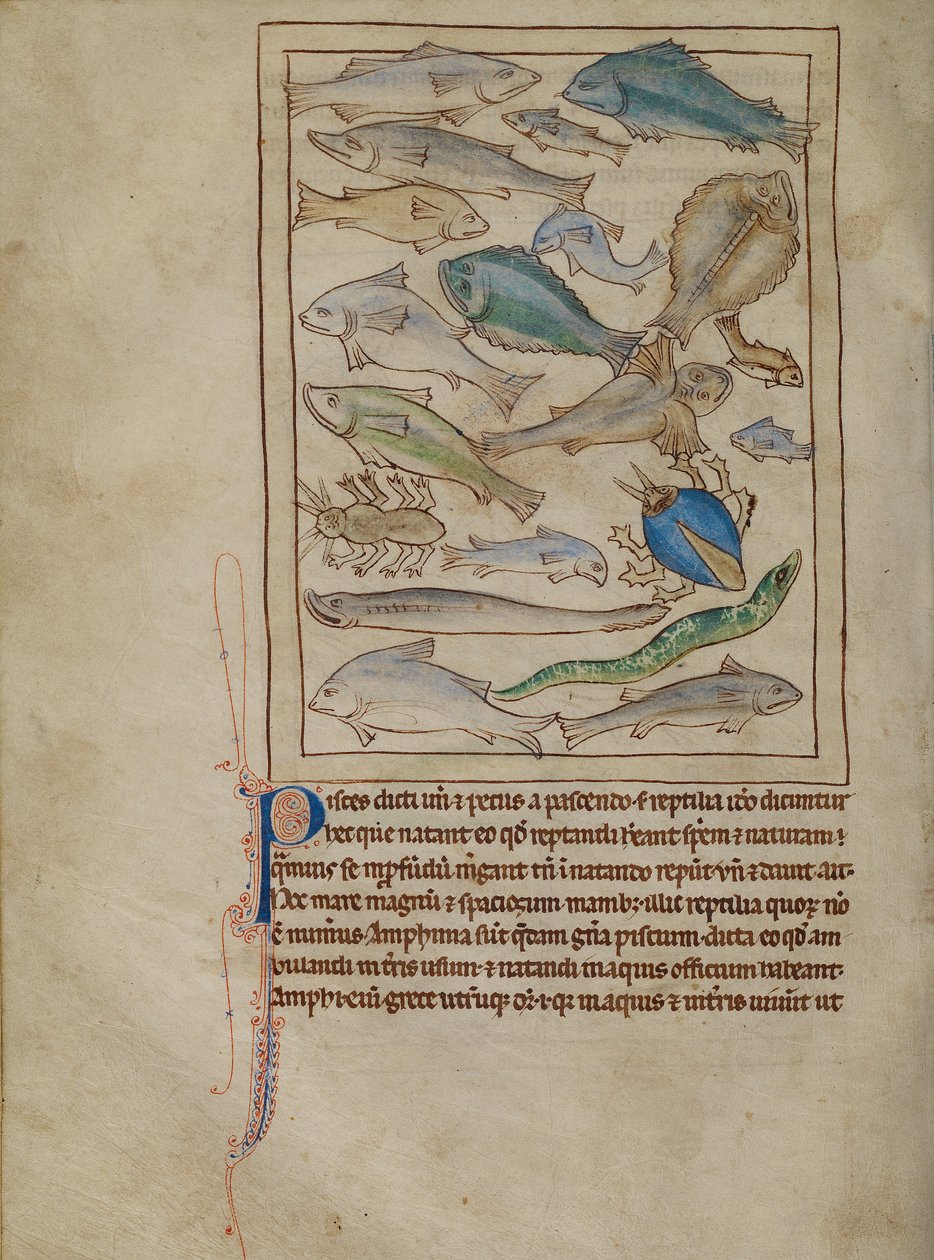 Pisces dicti uñ ⁊ pecus a pascendo · s̄ reptilia ido dicuntur
hec que natant eo qd̄ reptandi heant sp̄em ⁊ naturam ·
q̄muis se in p̄fūdū m̄gant tn̄ i natando repūt vn̄ ⁊ dauit ait ·
Hoc mare magnū ⁊ spaciosum manibꝫ · illic reptilia quoꝝ nō
ē num̄us · Amphiuia sūt q̄dam gn̄a piscium · dicta eo qd̄ am
bulandi in tr̄is usum · ⁊ natandi in aquis officium habeant ·
Amphi · eni᷒ grece utrūqꝫ dr̄ · i · qꝛ in aquis ⁊ in tr̄is uiuūt ut